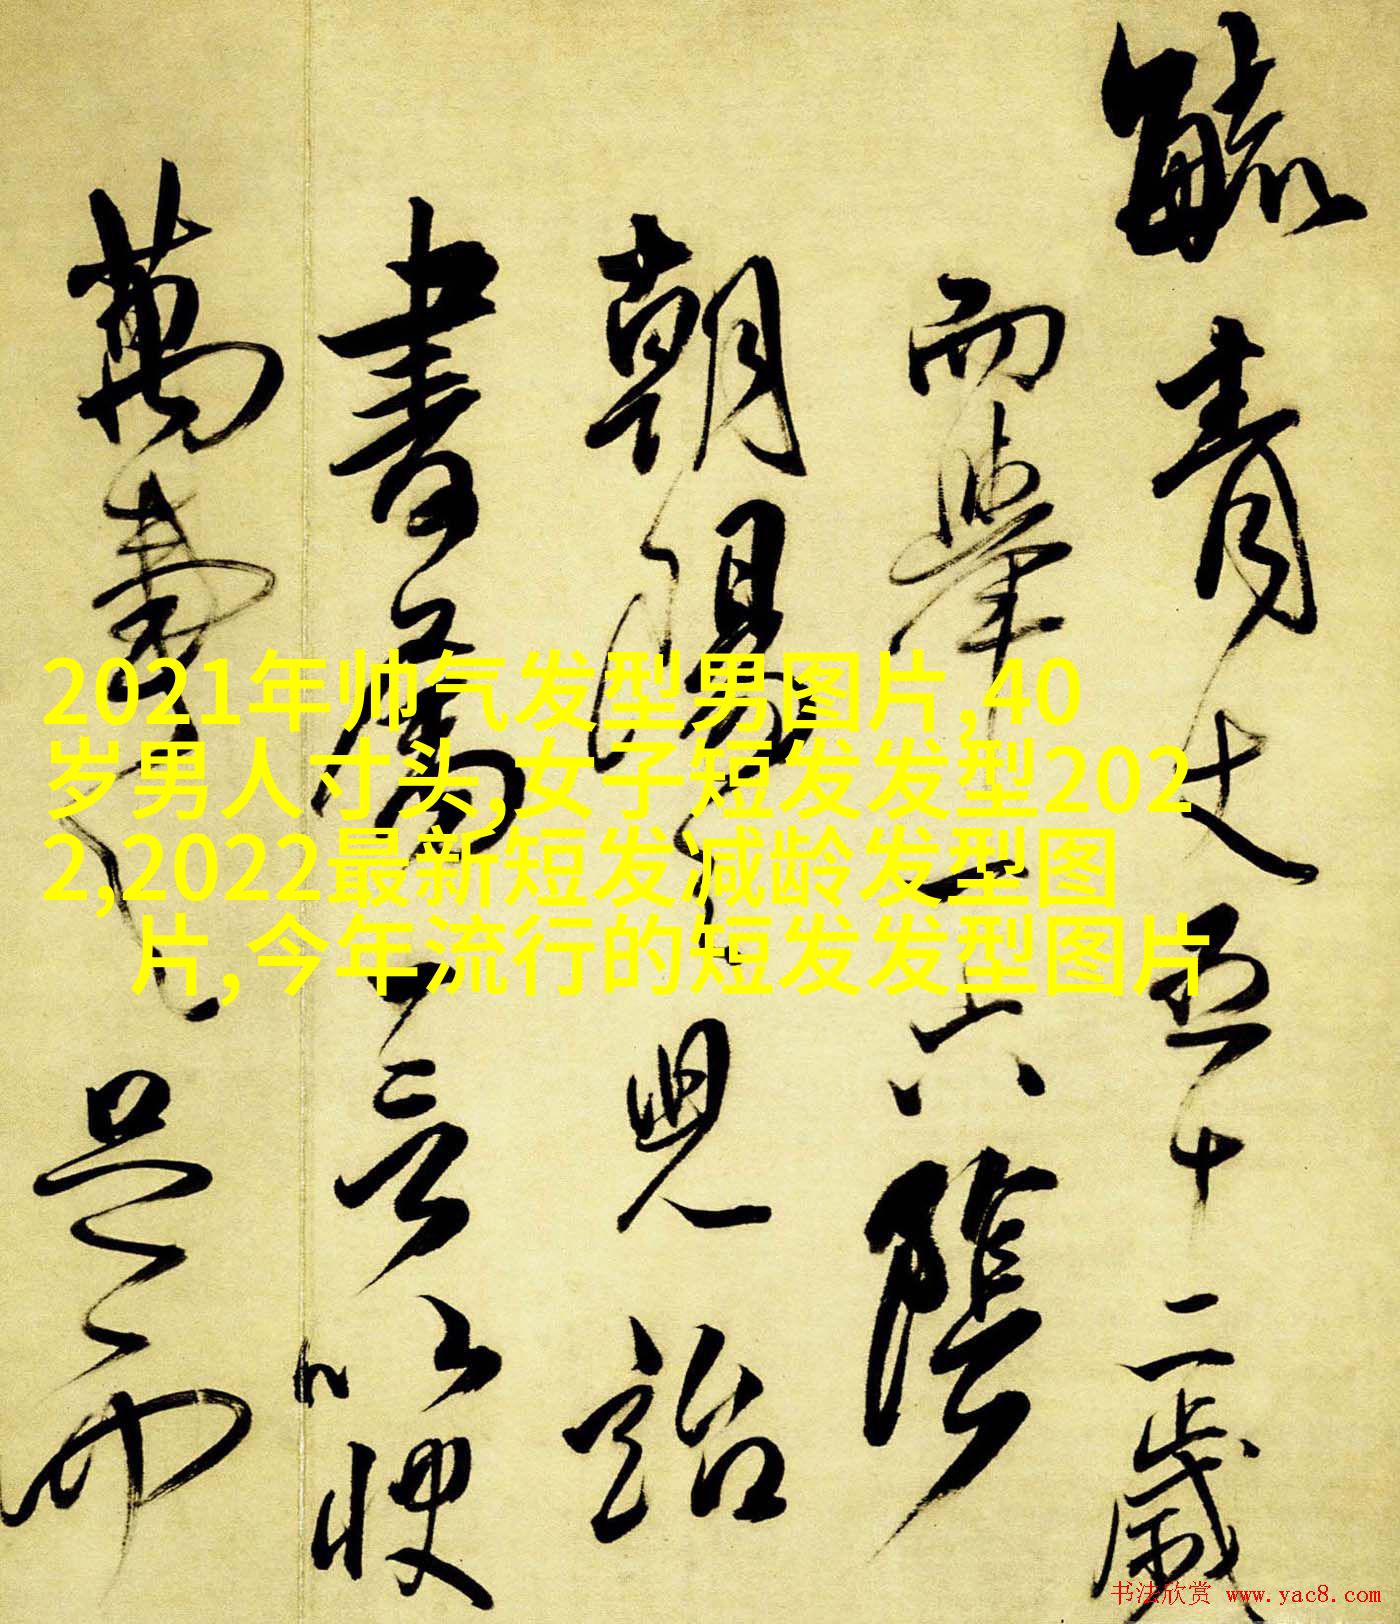 毓青丈五十二歲
而舉六陰
朝陽見詒
書屬一言以
萬壽
2021年帅气发型男图片,40
岁男人寸头,女子短发发型202
2,2022最新短发减龄发型图
片,今年流行的短发发型图片
书法欣赏 www.yac8.com